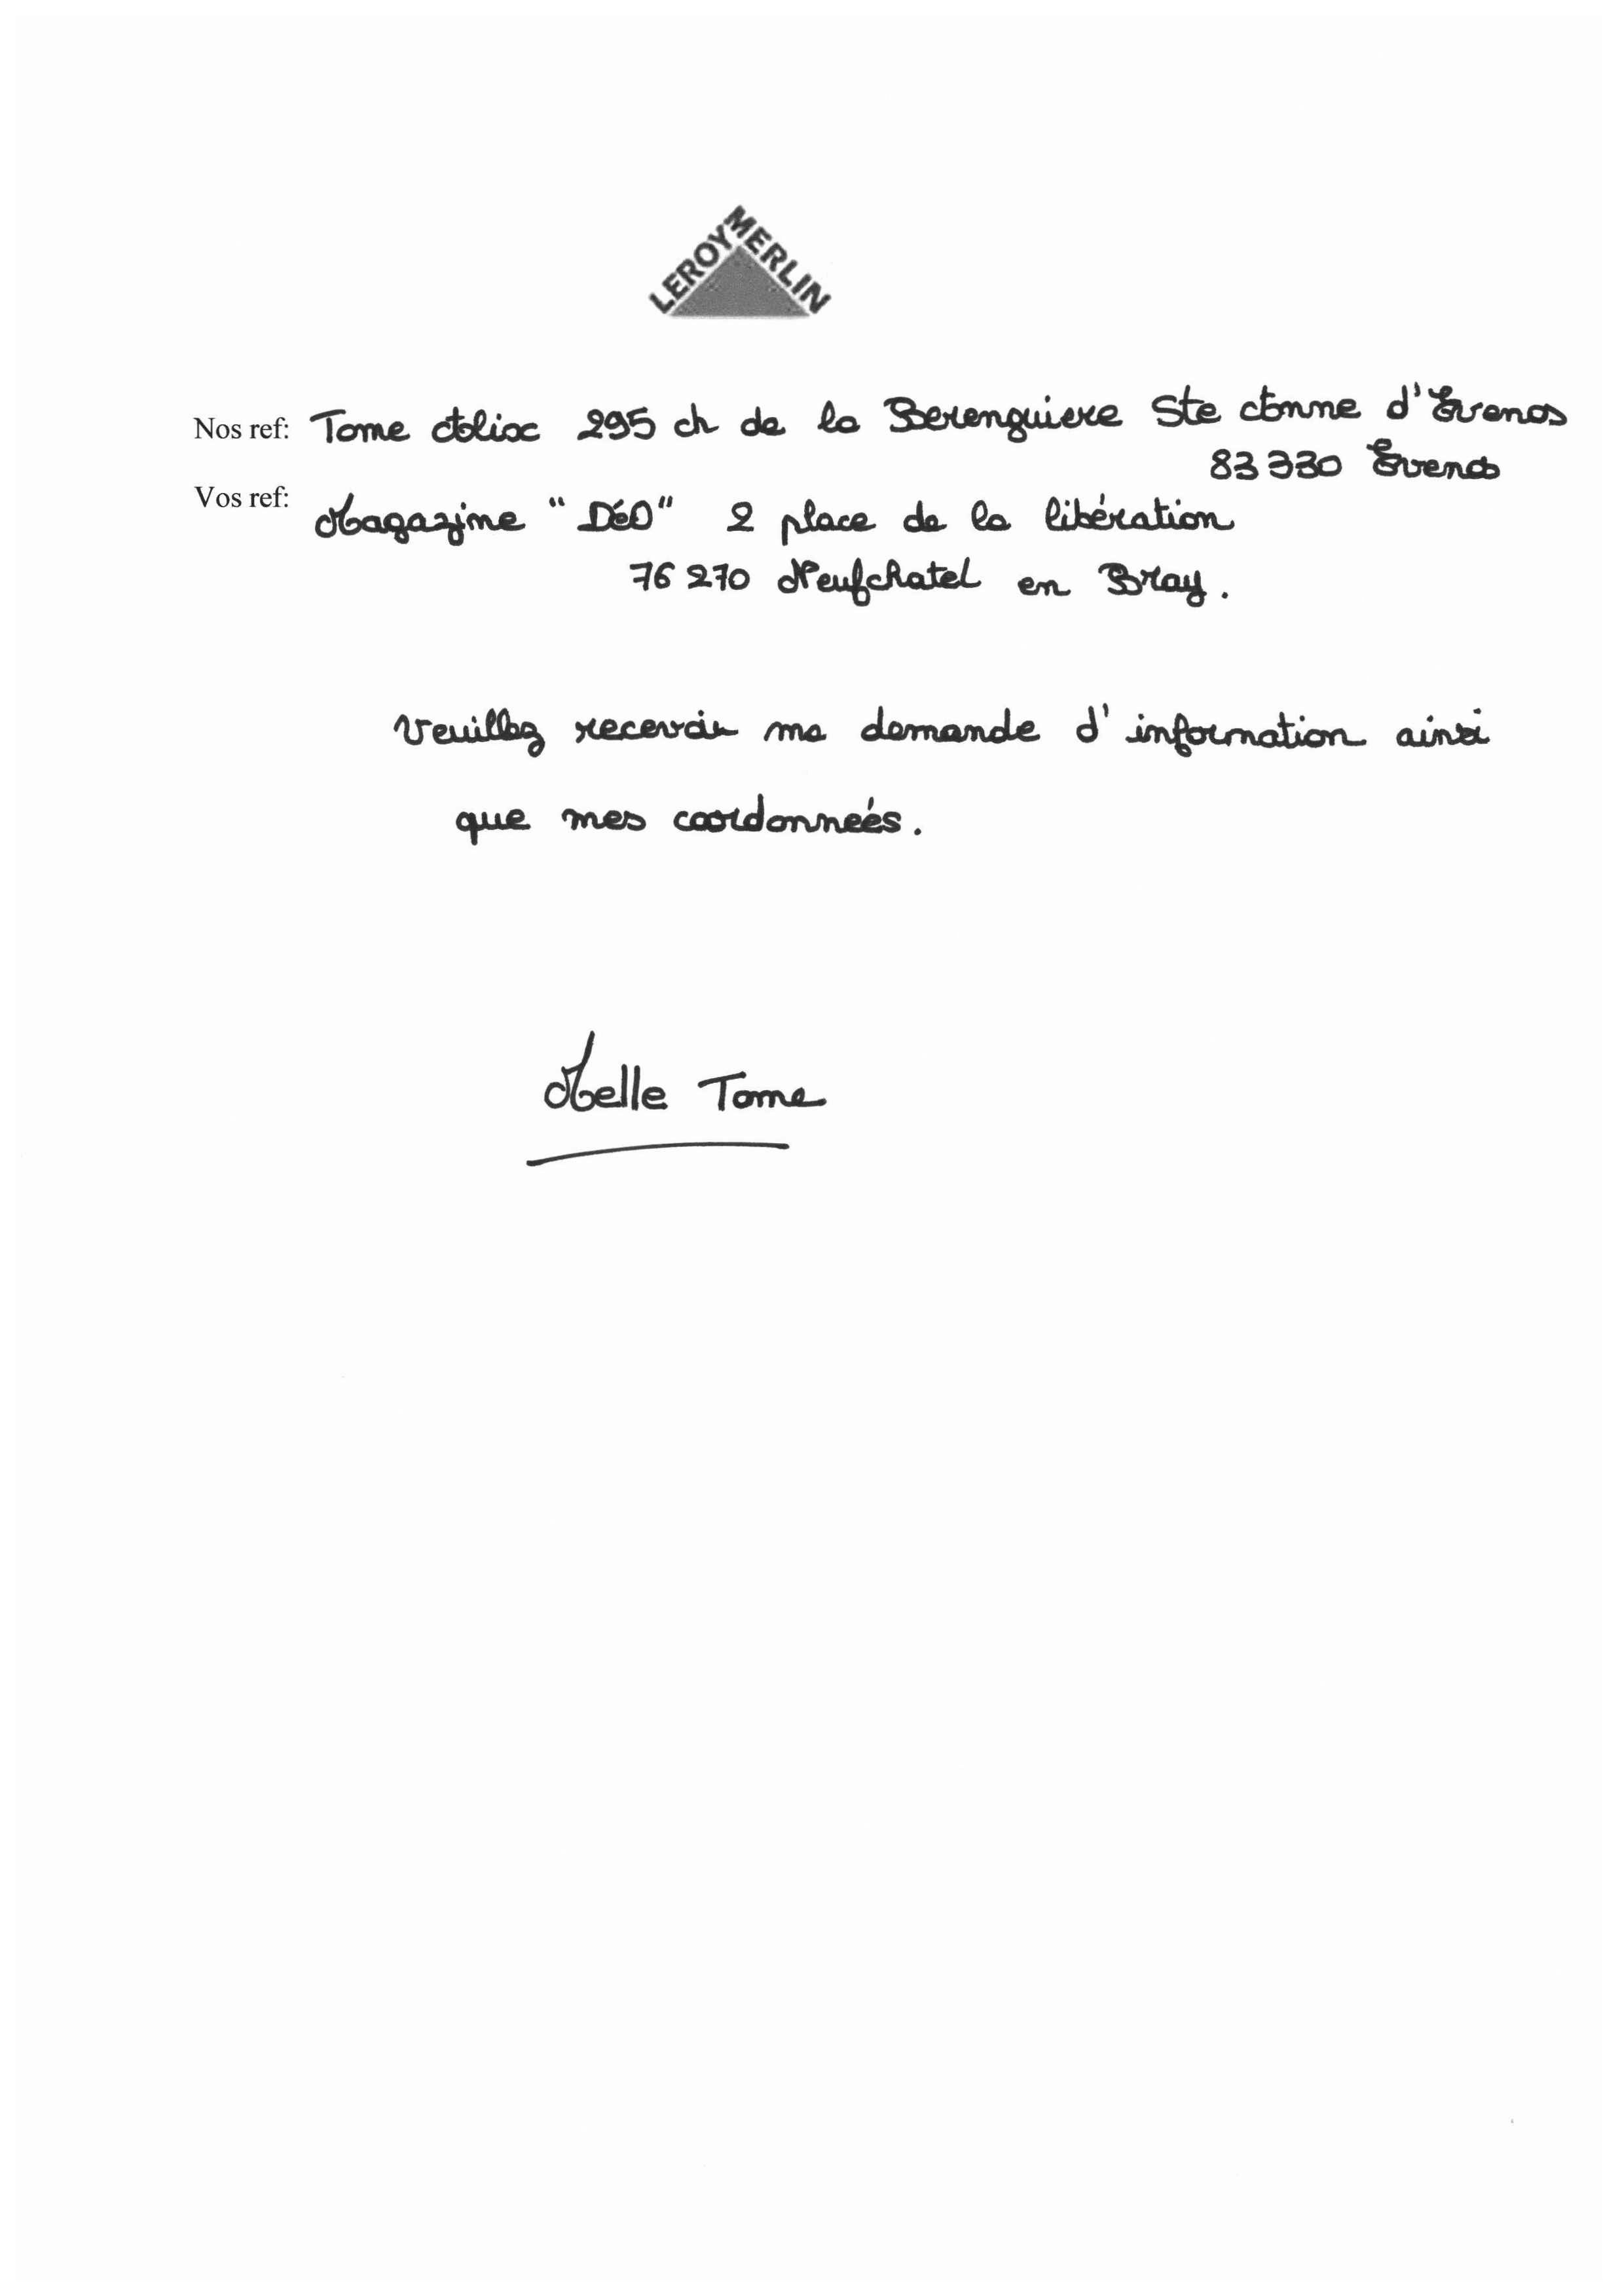 LEROY MERLIN
Nos ref: Tome Alix 295 ch de la Berenguiere Ste Anne d'Evenos
83 330 Evenos
Vos ref:
Magazine "DéO" 2 place de la libération
76 270 Neufchatel en Bray.
Veuillez recevoir ma demande d'information ainsi
que mes coordonneés.
Melle Tome